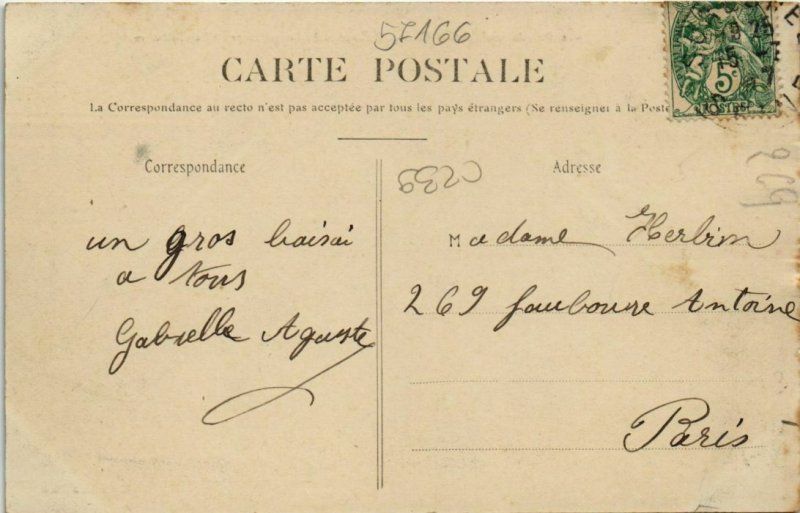 57166
CARTE POSTALE
La Correspondance au recto n'est pas acceptée par tous les pays étrangers (Se renseigner à la Poste
5c
POSTES
Correspondance
C239
Adresse
209
un gros baisai
a tous
Gabrielle Aguste
Madame Herbin
269 fauboure Antoine
Paris